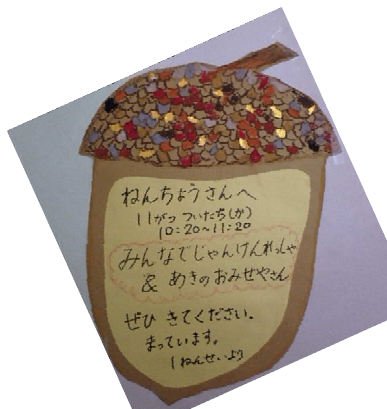 ねんちょうさんへ
11がつ ついたち(か)
10:20~11:20
みんなでじゃんけんれっしゃ
& あきのおみせやさん
ぜひ きてください。
まっています。
1ねんせいより